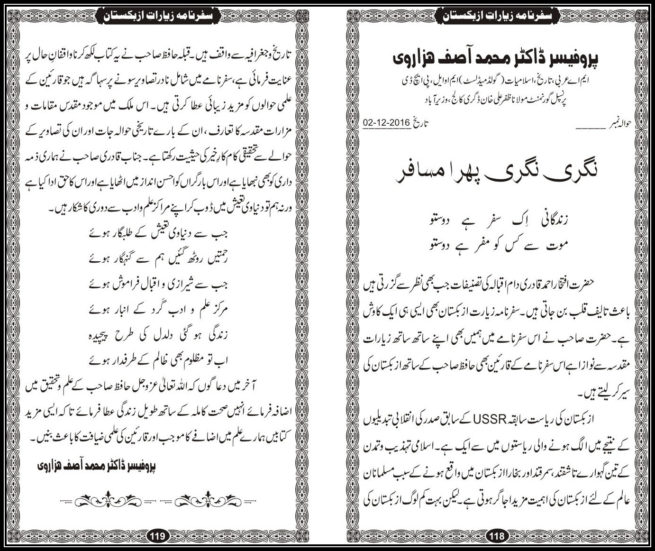 سفرنامہ زیارات ازبکستان
پروفیسر ڈاکٹر محمد آصف ہزاروی
ایم اے عربی، تاریخ، اسلامیات (گولڈ میڈلسٹ) ایم او ایل، پی ایچ ڈی
پرنسپل گورنمنٹ مولانا ظفر علی خان ڈگری کالج، وزیر آباد
حوالہ نمبر ______ تاریخ 02-12-2016
نگری نگری پھرا مسافر
زندگانی اِک سفر ہے دوستو
موت سے کس کو مفر ہے دوستو
حضرت افتخار احمد قادری دام اقبالہ کی تصنیفات جب بھی نظر سے گزرتی ہیں
باعث تالیف قلب بن جاتی ہیں۔ سفر نامہ زیارت ازبکستان بھی ایسی ہی ایک کاوش
ہے۔ حضرت صاحب نے اس سفرنامے میں ہمیں بھی اپنے ساتھ ساتھ زیارات
مقدسہ سے نوازا ہے اس سفرنامے کے قارئین بھی حافظ صاحب کے ساتھ ساتھ ازبکستان کی
سیر کر لیتے ہیں۔
ازبکستان کی ریاست سابقہ USSR کے سابق صدر کی انقلابی تبدیلیوں
کے نتیجے میں الگ ہونے والی ریاستوں میں سے ایک ہے۔ اسلامی تہذیب و تمدن
کے تین گہوارے تاشقند، سمرقند اور بخارا ازبکستان میں واقع ہونے کے سبب مسلمانان
عالم کے لئے ازبکستان کی اہمیت مزید اجاگر ہوتی ہے۔ لیکن بہت کم لوگ ازبکستان کی
118
سفرنامہ زیارات ازبکستان
تاریخ و جغرافیہ سے واقف ہیں۔ قبلہ حافظ صاحب نے یہ کتاب لکھ کر ناواقفانِ حال پر
عنایت فرمائی ہے، سفرنامے میں شامل نادر تصاویر سونے پر سہاگہ ہیں جو قارئین کے
علمی حوالوں کو مزید زیبائی عطا کرتی ہیں۔ اس ملک میں موجود مقدس مقامات و
مزارات مقدسہ کا تعارف، ان کے بارے تاریخی حوالہ جات اور ان کی تصاویر کے
حوالے سے تحقیقی کام کار خیر کی حیثیت رکھتا ہے۔ جناب قادری صاحب نے ہماری ذمہ
داری کو بھی نبھایا ہے اور اس بارِ گراں کو احسن انداز میں اٹھایا ہے اور اس کا حق ادا کیا ہے
ورنہ ہم تو دنیاوی تعیش میں ڈوب کر اپنے مراکز علم و ادب سے دوری کا شکار ہیں۔
جب سے دنیاوی تعیش کے طلبگار ہوئے
رحمتیں روٹھ گئیں ہم سے گنہگار ہوئے
جب سے شیرازی و اقبال فراموش ہوئے
مرکز علم و ادب گرد کے انبار ہوئے
زندگی ہو گئی دلدل کی طرح پیچیدہ
اب تو مظلوم بھی ظالم کے طرفدار ہوئے
آخر میں دعا گو ہوں کہ اللہ تعالی عزوجل حافظ صاحب کے علم و تحقیق میں
اضافہ فرمائے انہیں صحت کاملہ کے ساتھ طویل زندگی عطا فرمائے تا کہ ایسی مزید
کتابیں ہمارے علم میں اضافے کا موجب اور قارئین کی علمی ضیافت کا باعث بنیں۔
پروفیسر ڈاکٹر محمد آصف ہزاروی
119